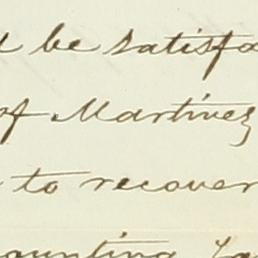 be satisfa
of Martinez
to recover
ounting